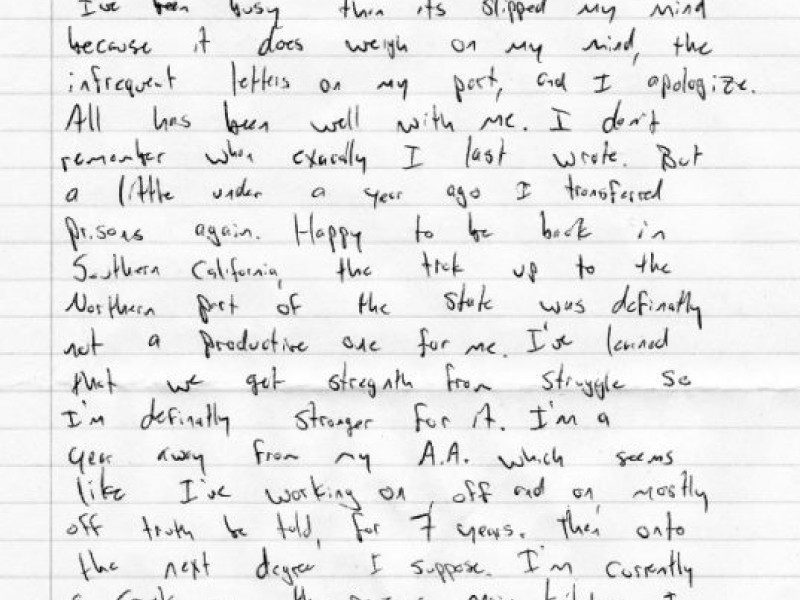 I've been busy then its slipped my mind
because it does weigh on my mind, the
infrequent letters on my part, and I apologize.
All has been well with me. I don't
remember when exacally I last wrote. But
a little under a year ago I transferred
prisons again. Happy to be back in
Southern California, the trek up to the
Northern part of the state was definatly
not a productive one for me. I've learned
that we get stregnth from struggle so
I'm definatly stronger for it. I'm a
year away from my A.A. which seems
like I've working on, off and on, mostly
off truth be told, for 7 years. Then onto
the next degree I suppose. I'm currently